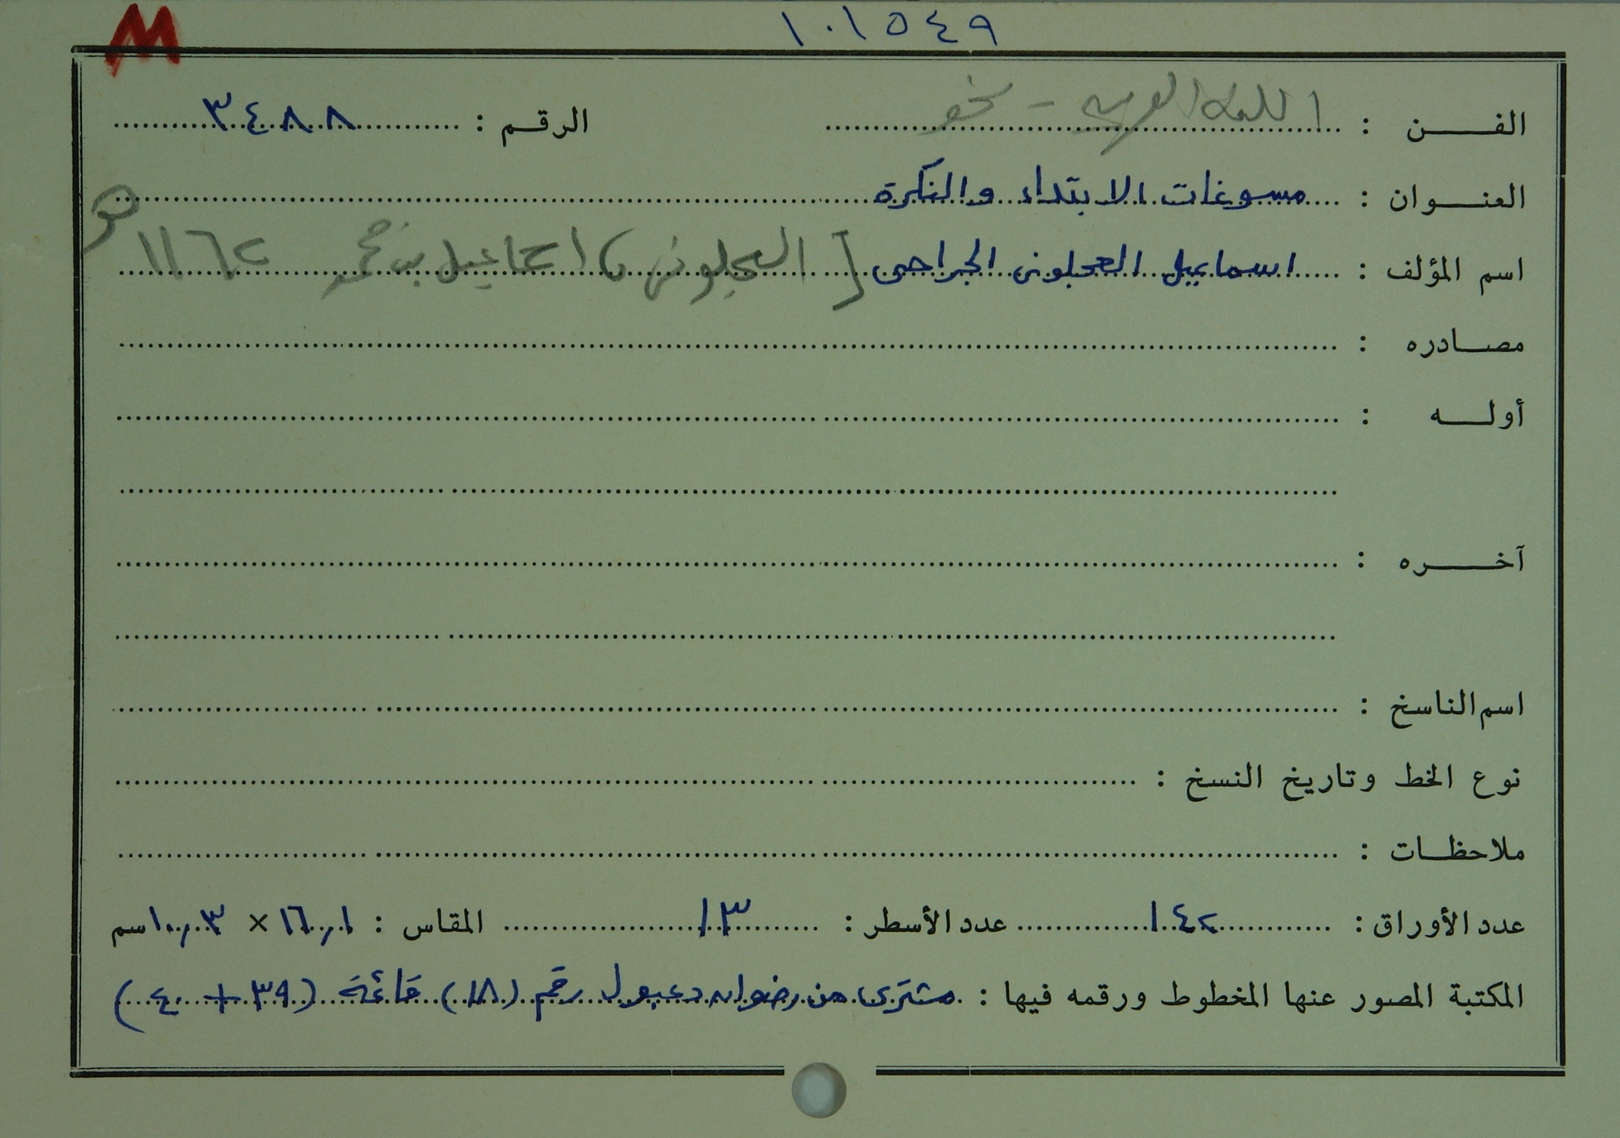 M
١٠١٥٤٩
الفن : اللغة العربية - نحو الرقم : ٣٤٨٨
العنوان : مسوغات الابتداء والنكرة
اسم المؤلف : اسماعيل العجلونى الجراحى [ العجلوني ، اسماعيل بن محمد ١١٦٢ هـ
مصادره :
أوله :
آخره :
اسم الناسخ :
نوع الخط وتاريخ النسخ :
ملاحظات :
عدد الأوراق : ١٤٢ عدد الأسطر : ١٣ المقاس : ١٦,١ × ١٠,٣ سم
المكتبة المصور عنها المخطوط ورقمه فيها : مشترى من رضوان دعبول رقم (١٨) قائمة (٣٩ + ٤٠)